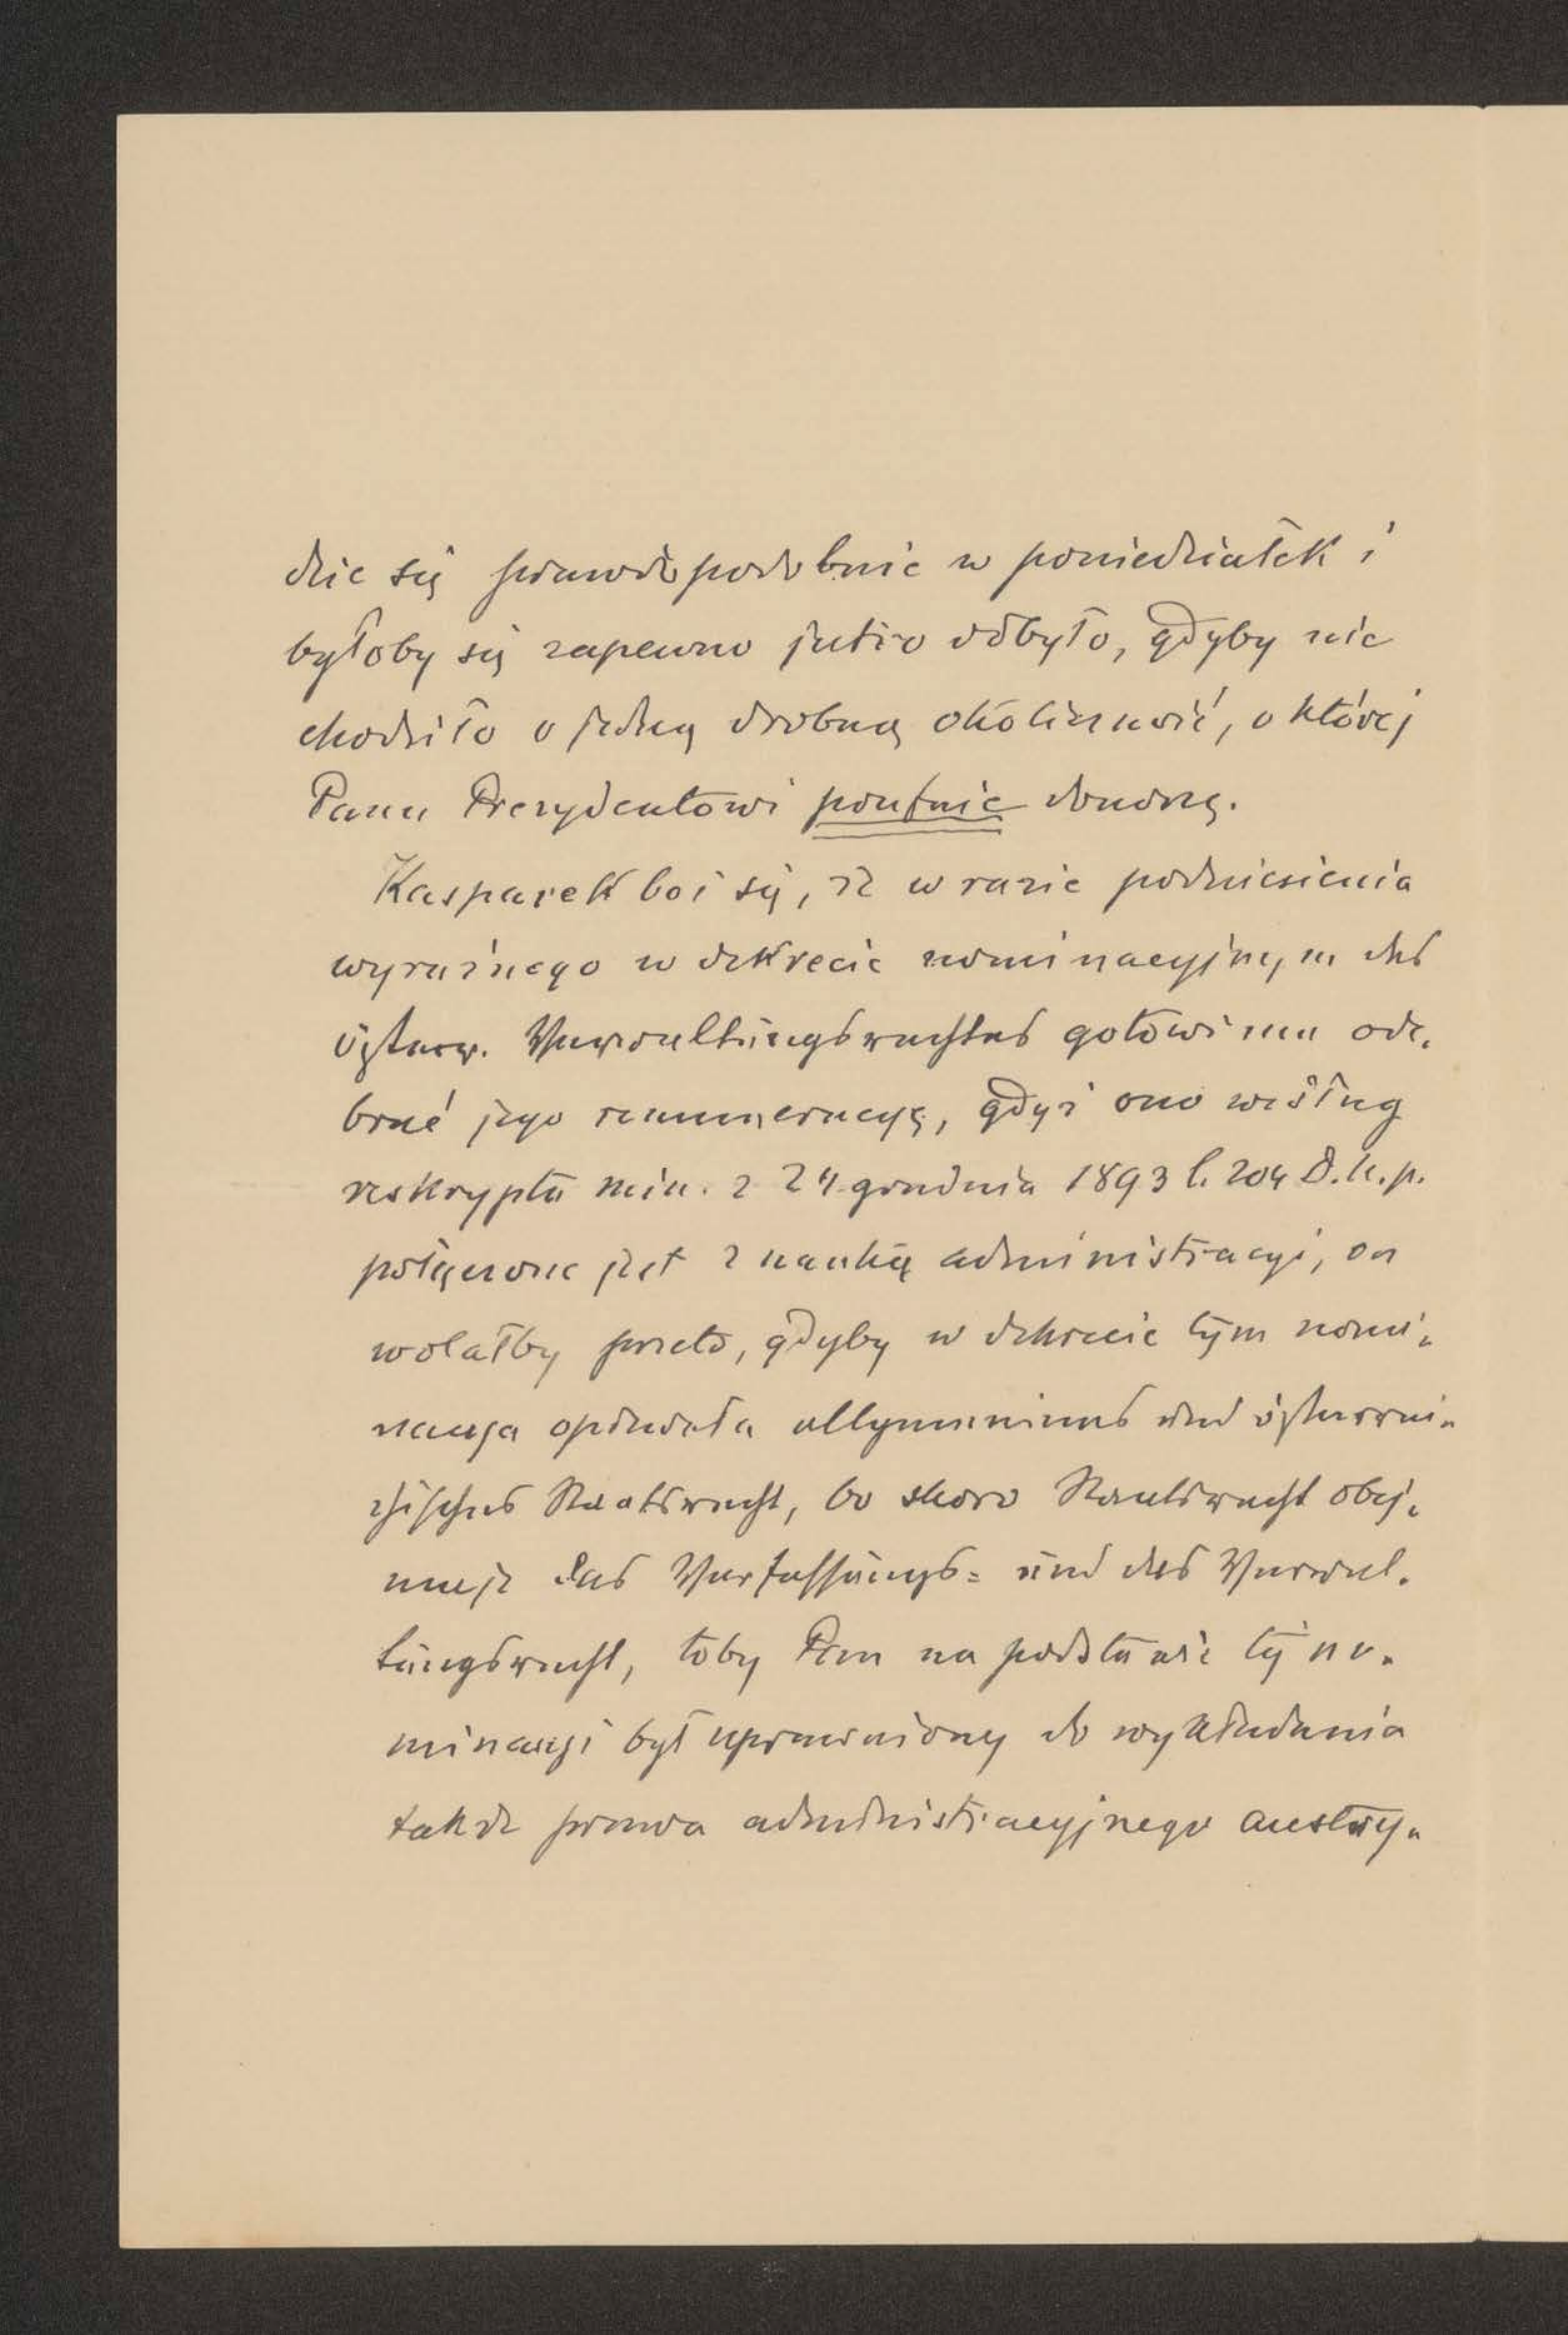 dzie się prawdopodobnie w poniedziałek i
byłoby się zapewno jutro odbyło, gdyby nie
chodziło o jedną drobną okoliczność, o której
Panu Prezydentowi poufnie donoszę.
Kasparek boi się, że w razie podniesienia
wyraźnego w dekrecie nominacyjnym des
österr. Verwaltungsrechtes gotowi mu ode-
brać jego remuneracyę, gdyż ono według
reskryptu min. z 24 grudnia 1893 l. 204 D.u.p.
połączone jest z nauką administracyi, on
wolałby przeto, gdyby w dekrecie tym nomi-
nacya opiewała allgemeines und österrei-
chisches Staatsrecht, bo skoro Staatsrecht obej-
muje das Verfassungs= und das Verwal-
tungsrecht, toby Pan na podstawie tej no-
minacyi był uprawniony do wykładania
także prawa administracyjnego austry-